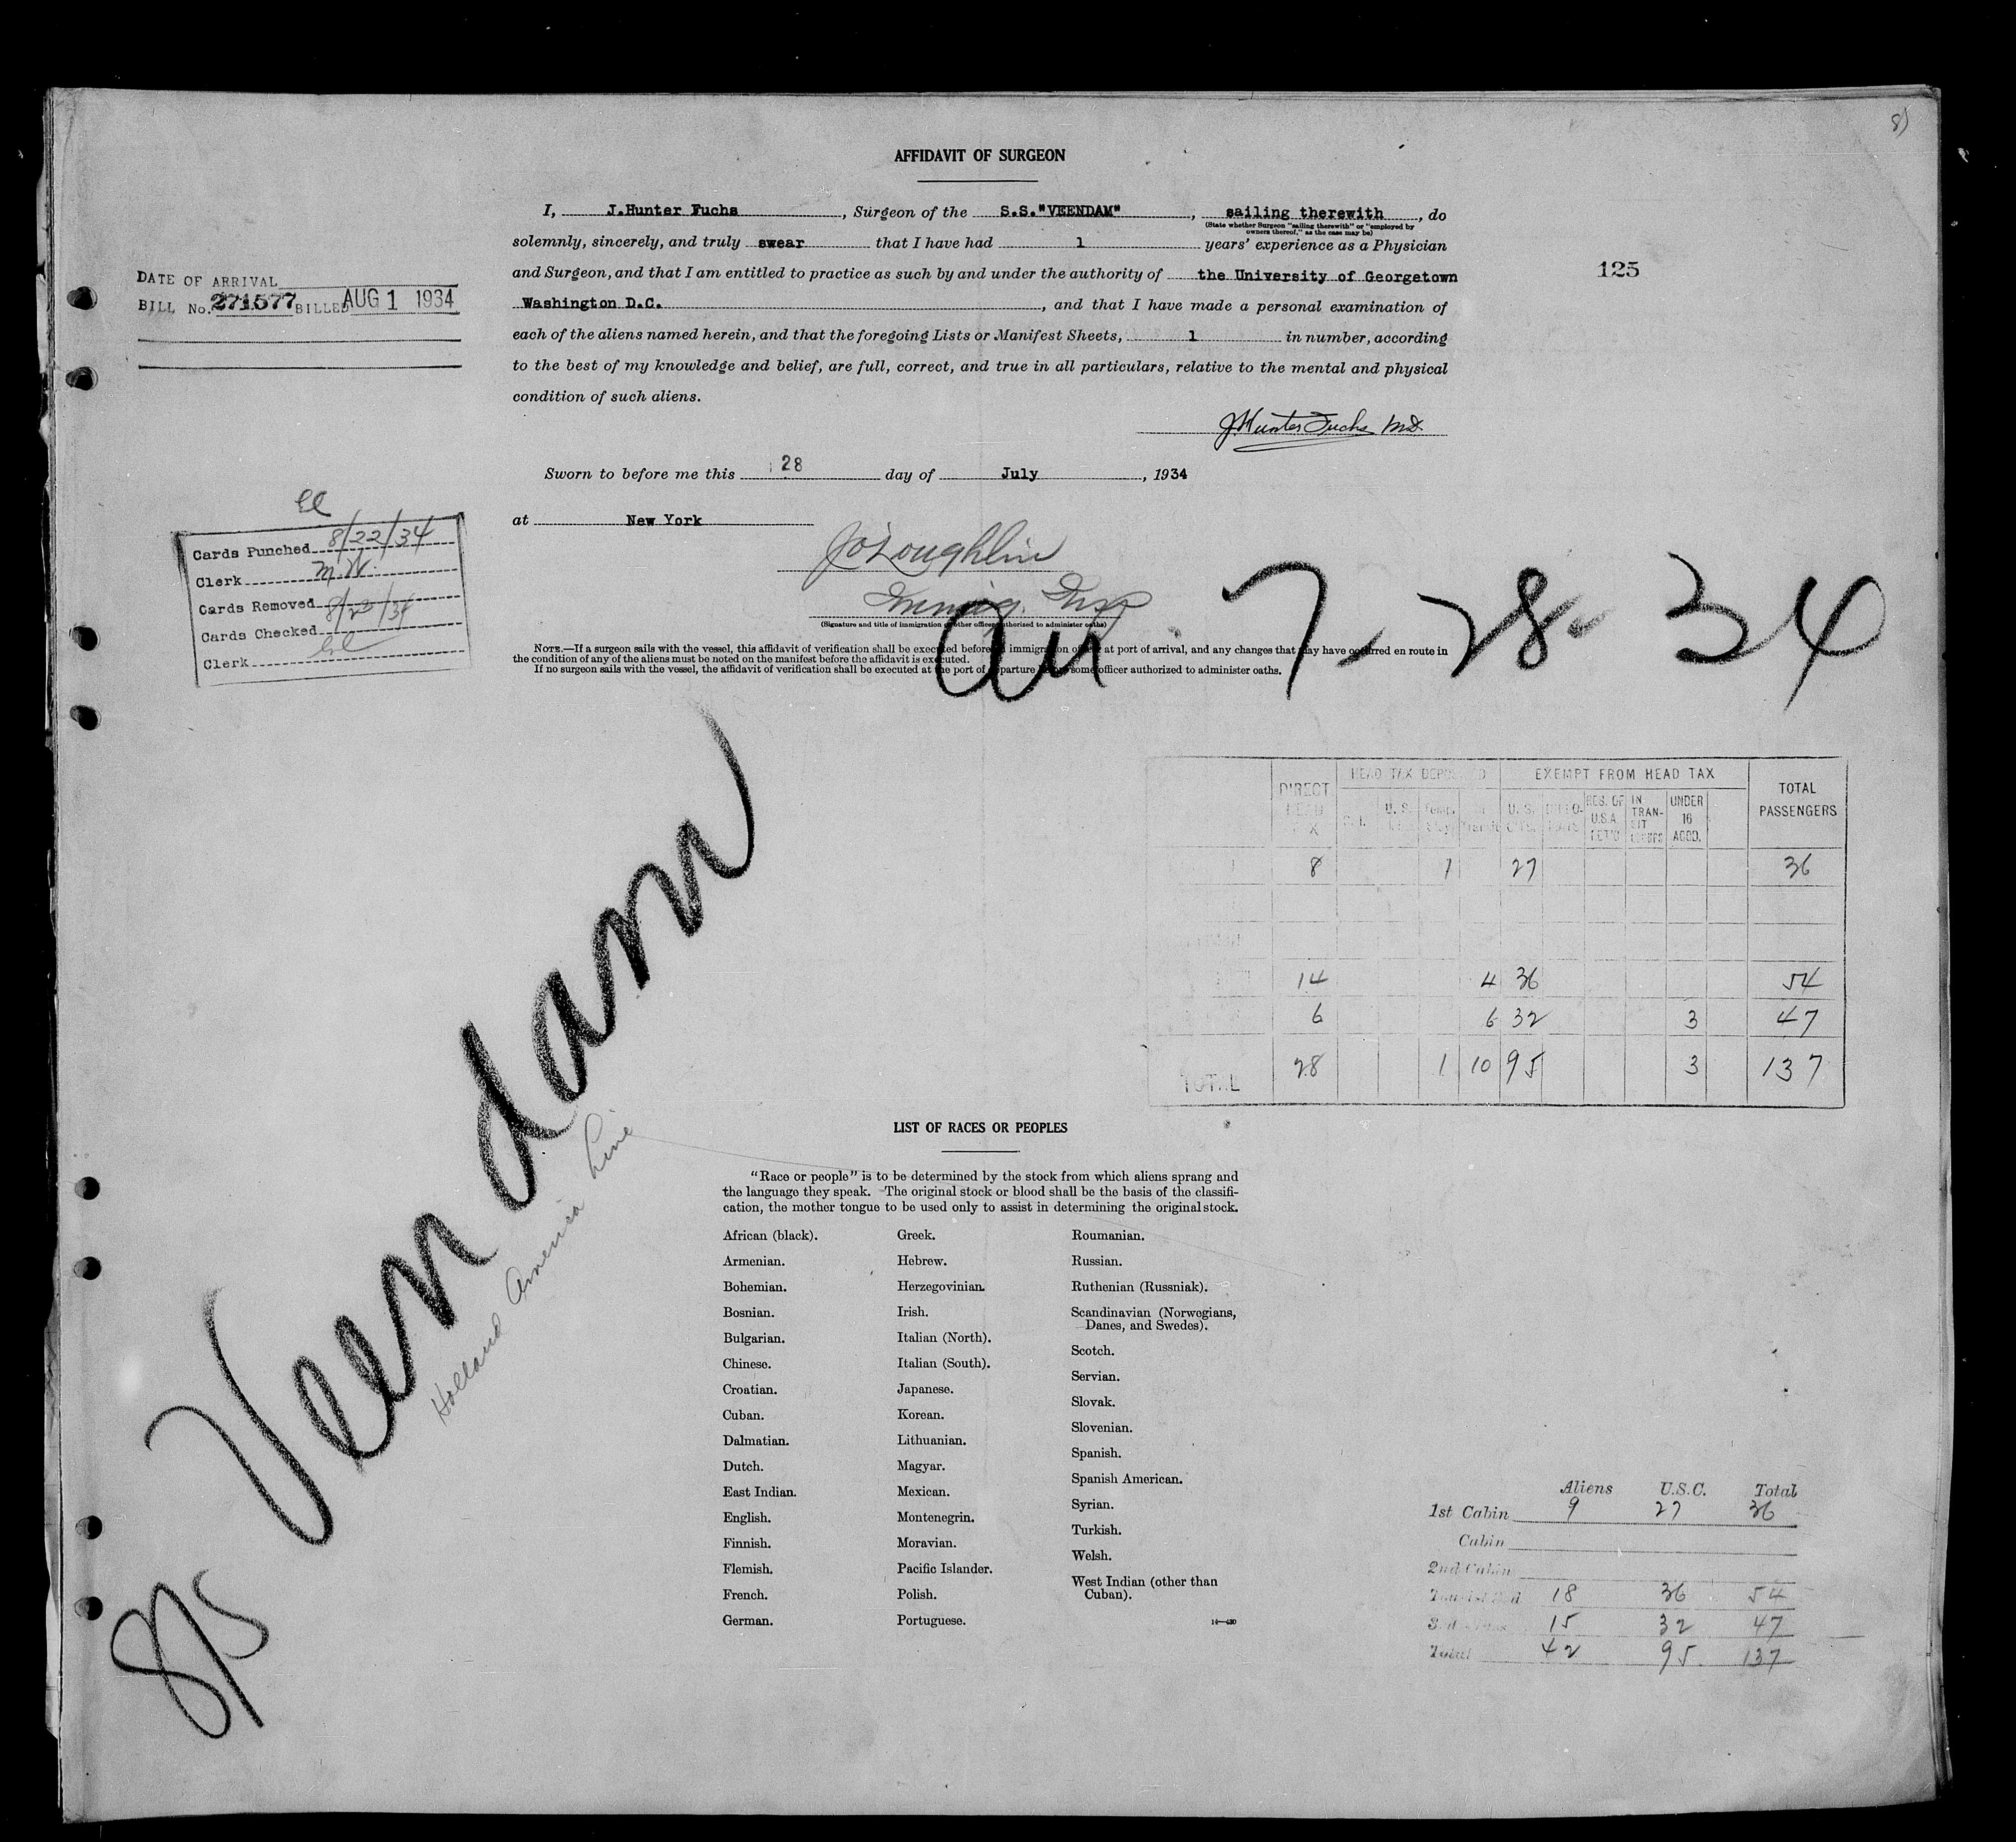 8)
AFFIDAVIT OF SURGEON
I, J.Hunter Fuchs, Surgeon of the S.S."VEENDAM", sailing therewith, do
(State whether Surgeon "sailing therewith" or "employed by
owners thereof," as the case may be)
solemnly, sincerely, and truly swear that I have had 1 years' experience as a Physician
and Surgeon, and that I am entitled to practice as such by and under the authority of the University of Georgetown
Washington D.C., and that I have made a personal examination of
each of the aliens named herein, and that the foregoing Lists or Manifest Sheets, 1 in number, according
to the best of my knowledge and belief, are full, correct, and true in all particulars, relative to the mental and physical
condition of such aliens.
J Hunter Fuchs MD
Sworn to before me this 28 day of July, 1934
at New York
J O'Loughlin
Immig. Insp
(Signature and title of immigration or other officer authorized to administer oaths)
NOTE.—If a surgeon sails with the vessel, this affidavit of verification shall be executed before an immigration officer at port of arrival, and any changes that may have occurred en route in
the condition of any of the aliens must be noted on the manifest before the affidavit is executed.
If no surgeon sails with the vessel, the affidavit of verification shall be executed at the port of departure before some officer authorized to administer oaths.
125
DATE OF ARRIVAL
BILL No. 271577 BILLED AUG 1 1934
Cards Punched 8/22/34
Clerk M.W.
Cards Removed
Cards Checked
Clerk
7-28-34
Veendam
Holland America Line
DIRECT HEAD TAX
HEAD TAX DEPOSITED
EXEMPT FROM HEAD TAX
TOTAL PASSENGERS
U. S. CITS.
RES. OF U.S.A. RET'G
IN TRANSIT
UNDER 16 ACCD.
8 1 27 36
14 4 36 54
6 6 32 3 47
TOTAL 28 1 10 95 3 137
LIST OF RACES OR PEOPLES
"Race or people" is to be determined by the stock from which aliens sprang and
the language they speak. The original stock or blood shall be the basis of the classifi-
cation, the mother tongue to be used only to assist in determining the original stock.
African (black).
Armenian.
Bohemian.
Bosnian.
Bulgarian.
Chinese.
Croatian.
Cuban.
Dalmatian.
Dutch.
East Indian.
English.
Finnish.
Flemish.
French.
German.
Greek.
Hebrew.
Herzegovinian.
Irish.
Italian (North).
Italian (South).
Japanese.
Korean.
Lithuanian.
Magyar.
Mexican.
Montenegrin.
Moravian.
Pacific Islander.
Polish.
Portuguese.
Roumanian.
Russian.
Ruthenian (Russniak).
Scandinavian (Norwegians,
Danes, and Swedes).
Scotch.
Servian.
Slovak.
Slovenian.
Spanish.
Spanish American.
Syrian.
Turkish.
Welsh.
West Indian (other than
Cuban).
Aliens U.S.C. Total
1st Cabin 9 27 36
Cabin
2nd Cabin
18 36 54
15 32 47
Total 42 95 137